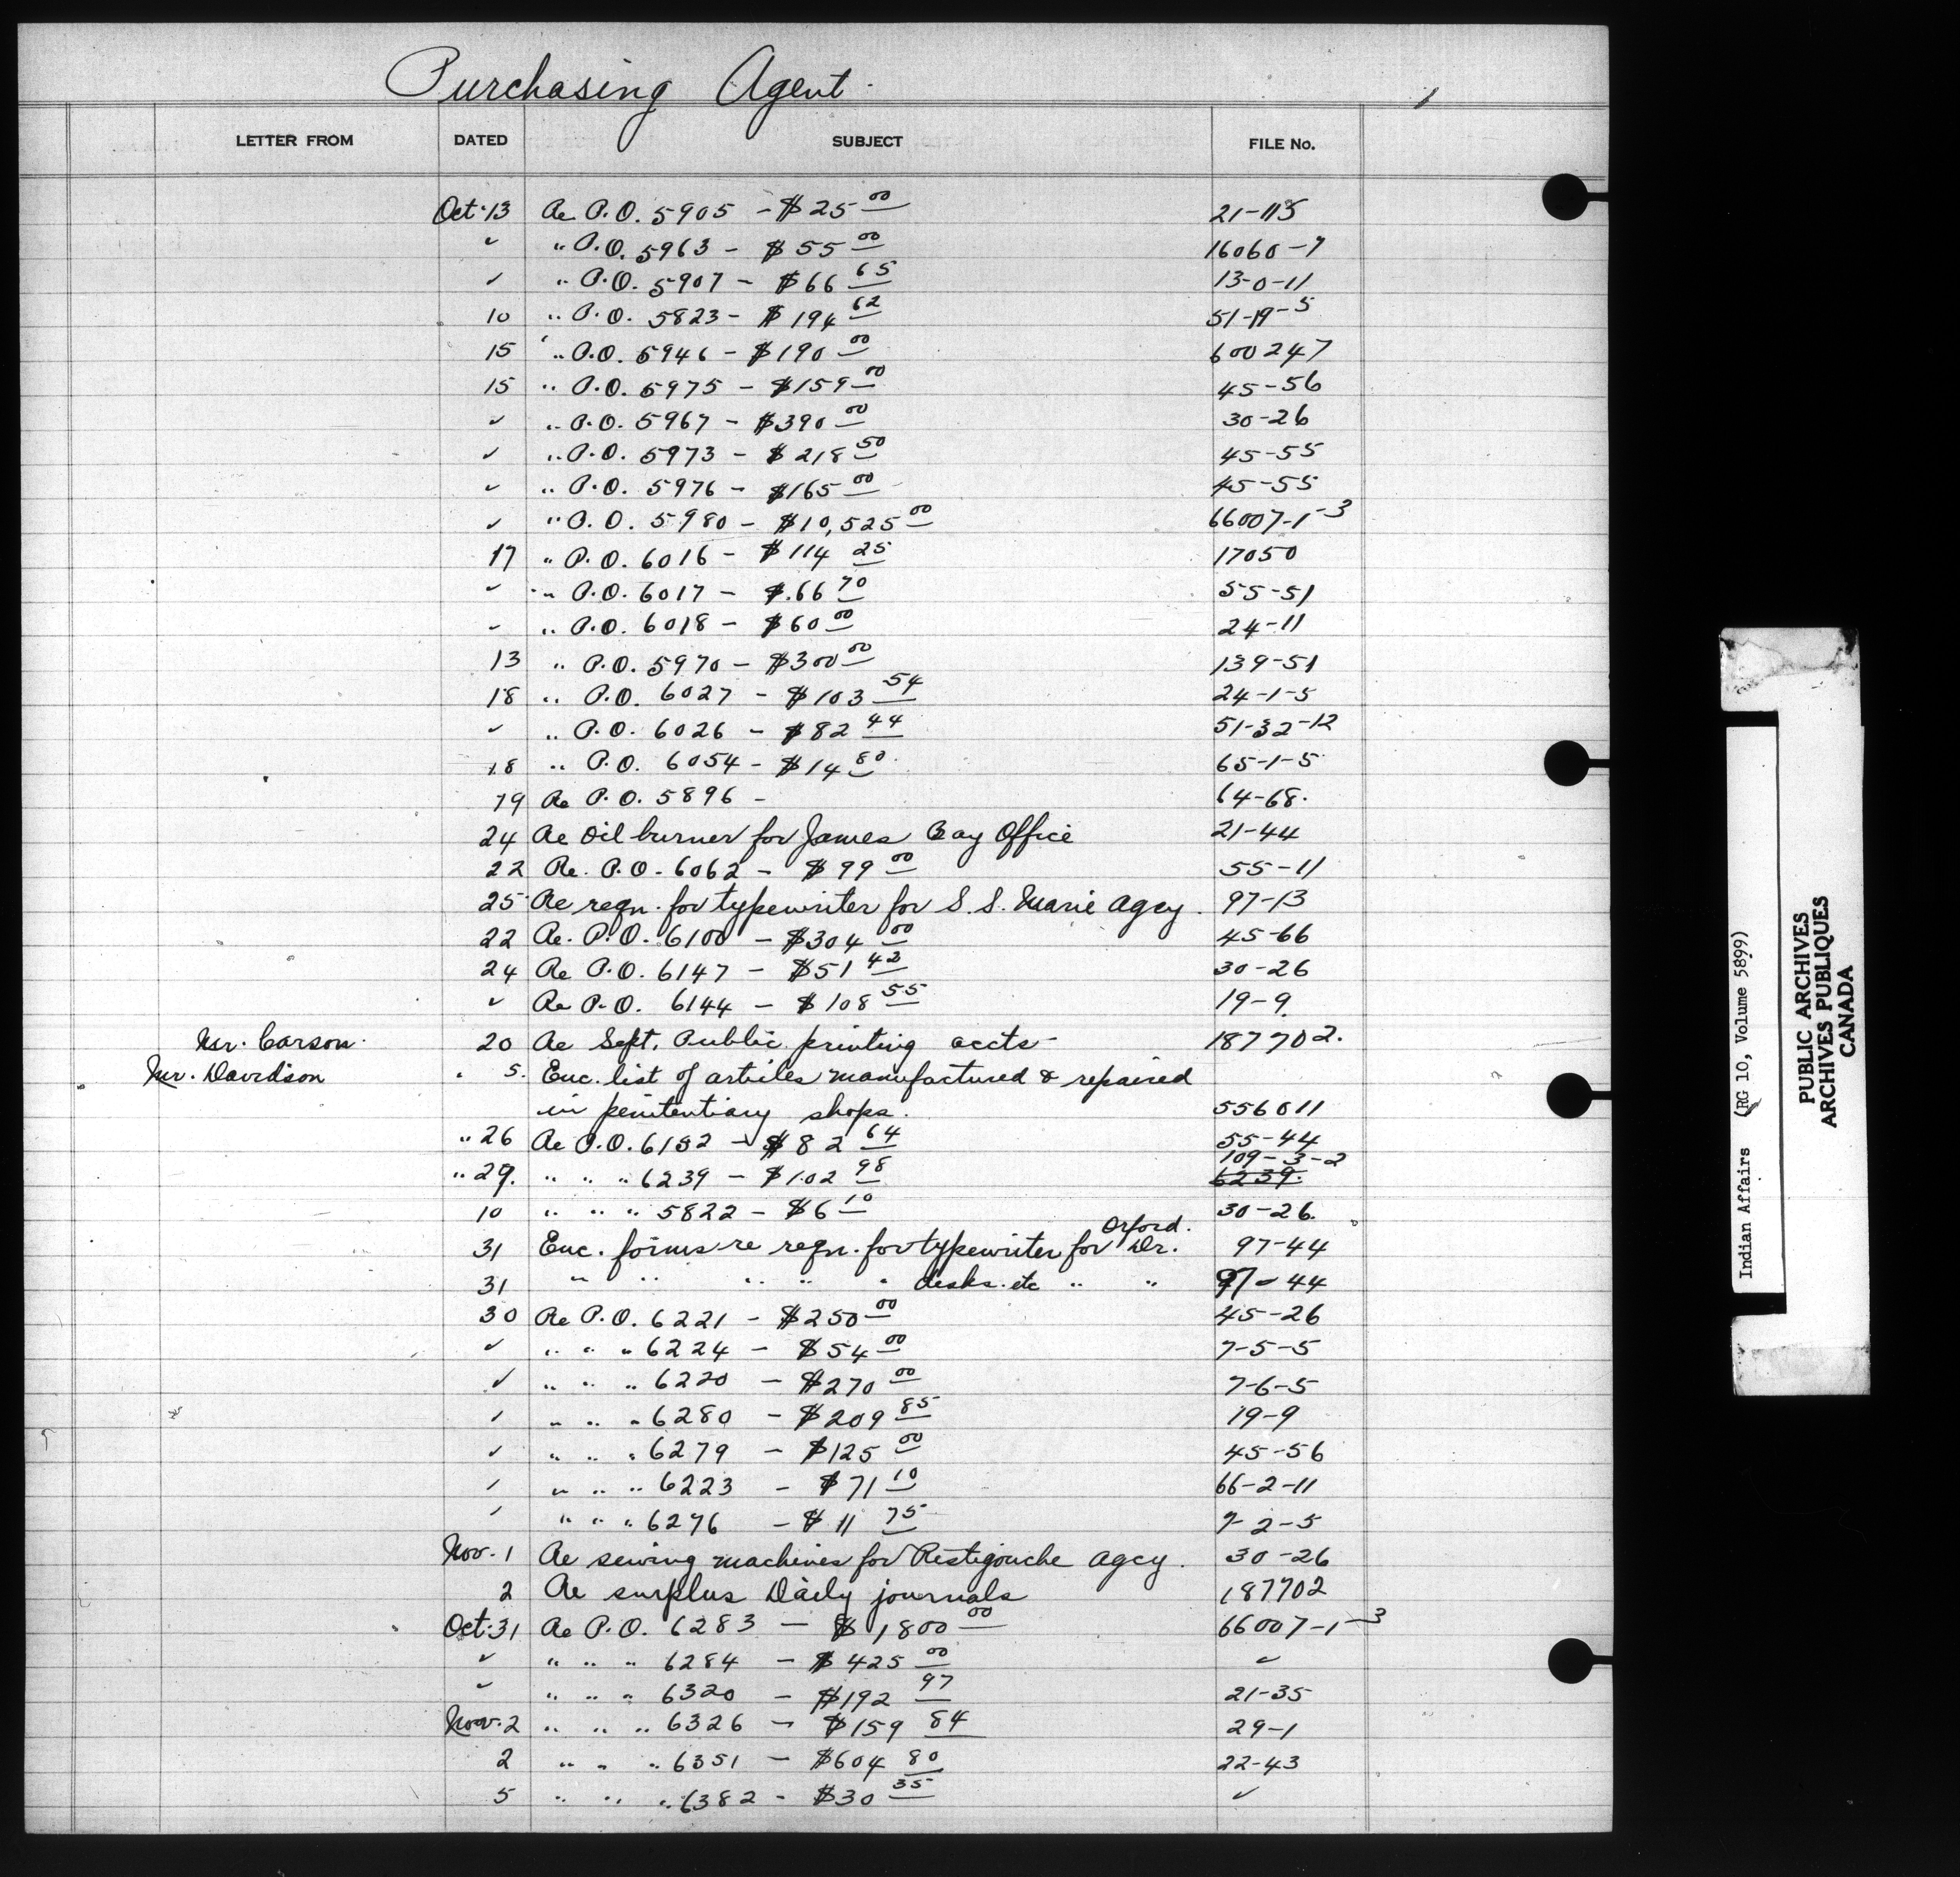 Purchasing Agent.
1
LETTER FROM DATED SUBJECT FILE No.
Oct. 13 Re P.O. 5905 - $25 00 21-115
✓ " P.O. 5963 - $55 00 16060-7
✓ " P.O. 5907 - $66 65 13-0-11
10 " P.O. 5823 - $194 62 51-19-5
15 " P.O. 5946 - $190 00 600247
15 " P.O. 5975 - $159 00 45-56
✓ " P.O. 5967 - $390 00 30-26
✓ " P.O. 5973 - $218 50 45-55
✓ " P.O. 5976 - $165 00 45-55
✓ " P.O. 5980 - $10,525 00 66007-1-3
17 " P.O. 6016 - $114 25 17050
✓ " P.O. 6017 - $66 70 55-51
✓ " P.O. 6018 - $60 00 24-11
13 " P.O. 5970 - $300 00 139-51
18 " P.O. 6027 - $103 54 24-1-5
✓ " P.O. 6026 - $82 44 51-32-12
18 " P.O. 6054 - $14 80 65-1-5
19 Re P.O. 5896 - 64-68.
24 Re oil burner for James Bay Office 21-44
22 Re. P.O. 6062 - $99 00 55-11
25 Re reqn. for typewriter for S.S. Marie Agcy. 97-13
22 Re. P.O. 6100 - $304 00 45-66
24 Re P.O. 6147 - $51 42 30-26
✓ Re P.O. 6144 - $108 55 19-9
Mr. Carson. 20 Re Sept. Public printing accts - 187702.
Mr. Davidson 5. Enc. list of articles manufactured & repaired
in penitentiary shops. 556011
" 26 Re P.O. 6152 - $82 64 55-44
109-3-2
" 29. " " " 6239 - $102 98 6239.
10 " " " 5822 - $6 10 30-26.
Orford.
31 Enc. forms re reqn. for typewriter for Dr. 97-44
31 " " " " " desks. etc " " 97-44
30 Re P.O. 6221 - $250 00 45-26
✓ " " " 6224 - $54 00 7-5-5
✓ " " " 6220 - $270 00 7-6-5
✓ " " " 6280 - $209 85 19-9
✓ " " " 6279 - $125 00 45-56
✓ " " " 6223 - $71 10 66-2-11
✓ " " " 6276 - $11 75 7-2-5
Nov. 1 Re sewing machines for Restigouche Agcy. 30-26
2 Re surplus Daily journals 187702
Oct. 31 Re P.O. 6283 - $1,800 00 66007-1-3
✓ " " " 6284 - $425 00 ✓
✓ " " " 6320 - $192 97 21-35
Nov. 2 " " " 6326 - $159 84 29-1
2 " " " 6351 - $604 80 22-43
5 " " " 6382 - $30 35 ✓
Indian Affairs (RG 10, Volume 5899)
PUBLIC ARCHIVES
ARCHIVES PUBLIQUES
CANADA